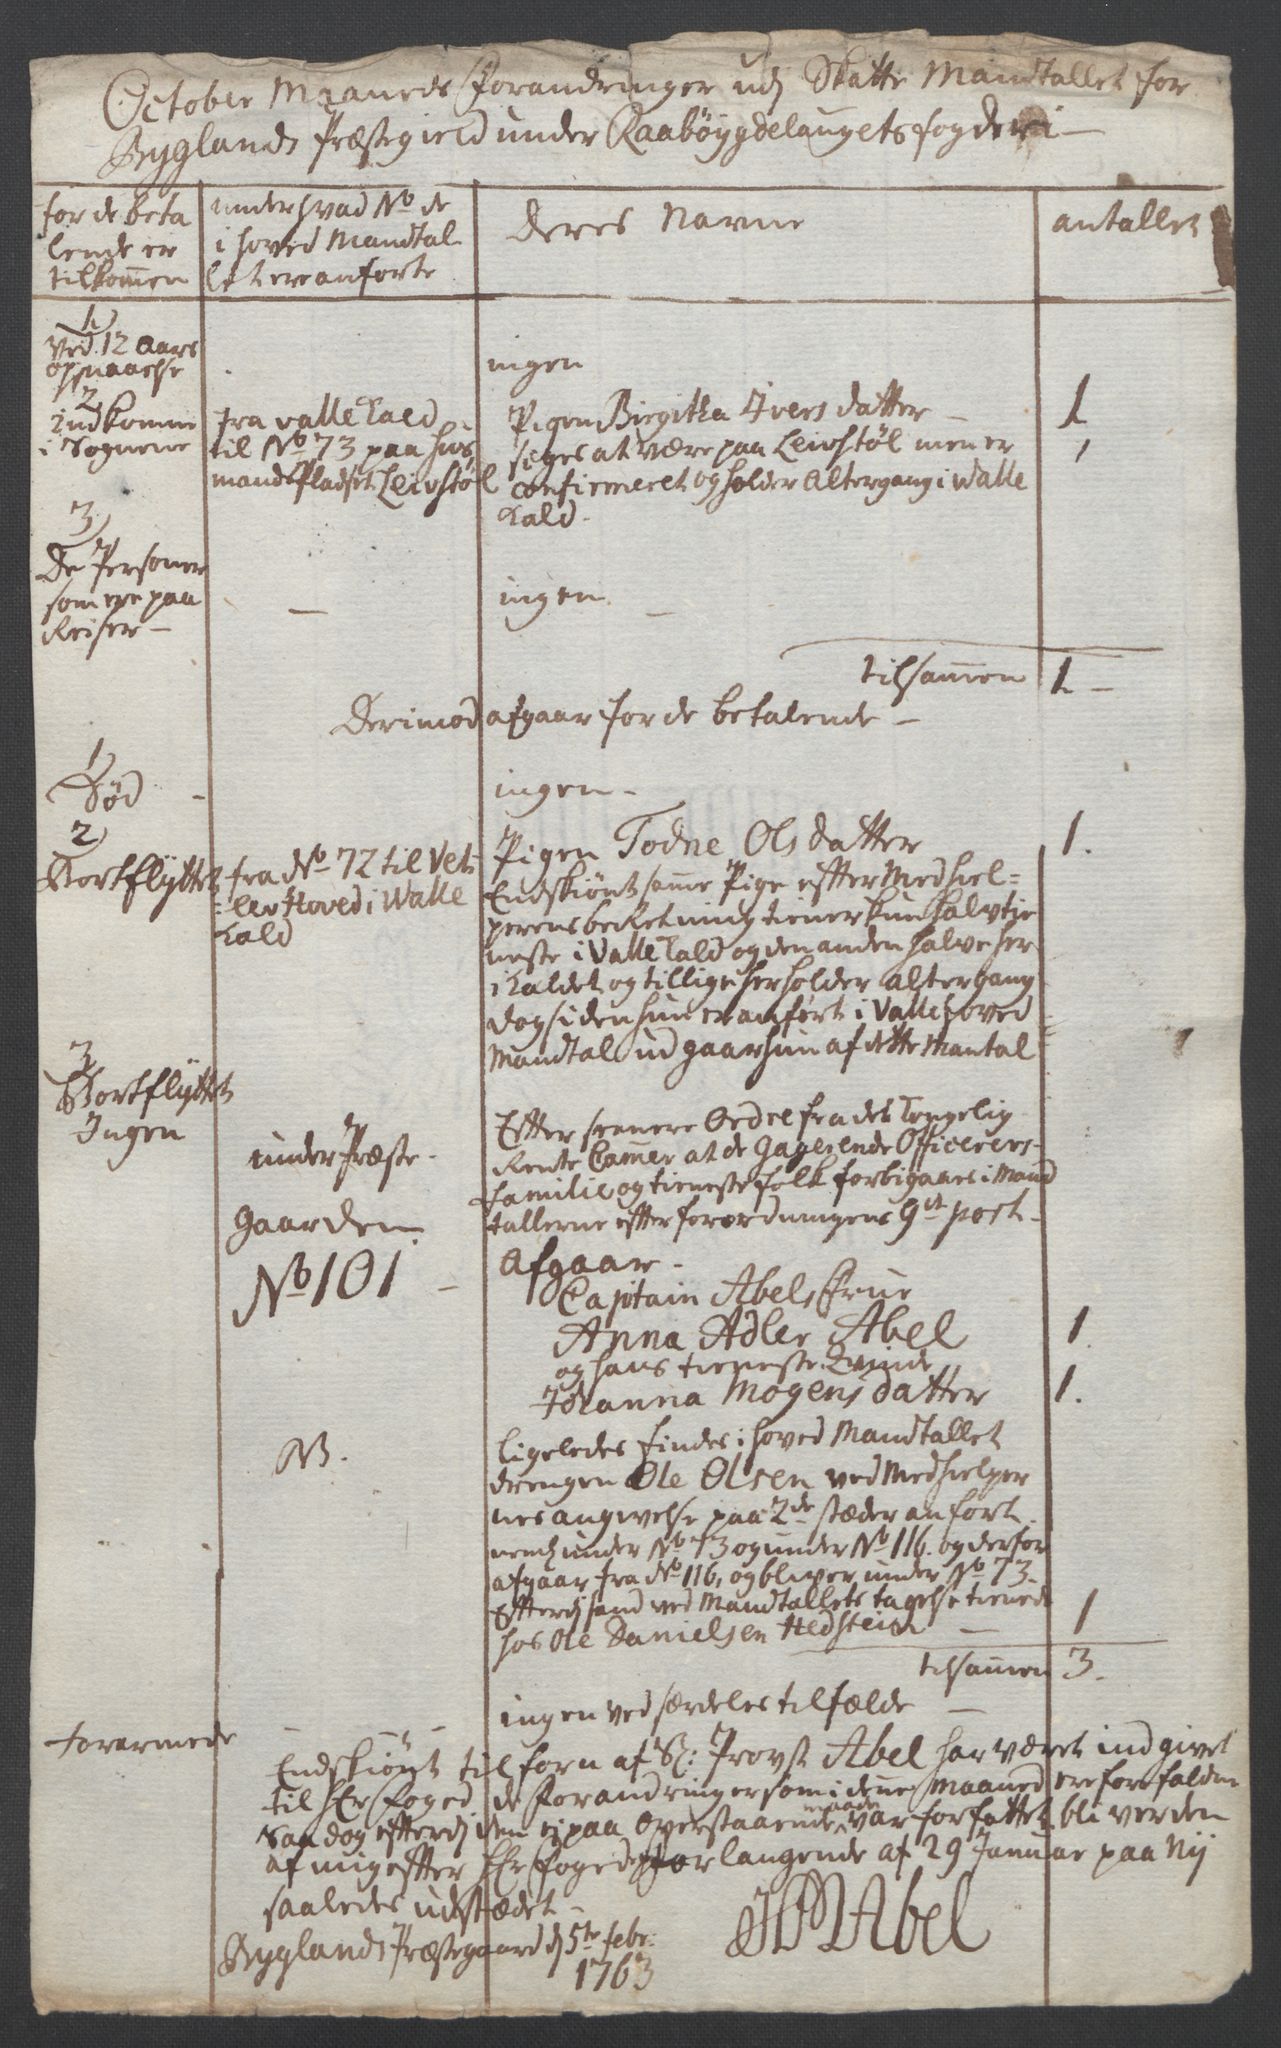 October Maaneds Forandringer udj Skatte Mandtallet for
Byglands Præstegield under Raabøygdelaugets fogderi
for de beta
lende er
tilkommen
under hvad No de
i hoved Mandtal
let ere anforte
deres Navne
antallet
1
Ved 12 Aars
opnaaelse
ingen
2
indkomne
i Sognene
fra valle Kald
til No 73 paa huus
mands Pladset Leivstøl
Pigen Birgitha Ivers datter
1
siges at være paa Leivstøl men er
confirmeret og holder Altergang i Walle
Kald.
3
De Personer
som ere paa
Reiser
ingen
tilsammen 1
Derimod afgaar for de betalende
1
Død
ingen
2
Bortflyttet
fra No 72 til Vet
lev Hoved i Walle
Kald
Pigen Todne Ols datter
1.
Endskiønt samme Pige efter Medhiel=
perens beretning tiener kun halv tie
neste i Valle Kald og den anden halve her
i Kaldet og tillige her holder alter gang
dog siden hun er anført i Valle hoved
Mandtal udgaar hun af dette Mantal
3
Bortflyttet
Ingen
under Præste-
Gaarden
No 101
Efter senere Ordre fra det Kongelig
Rente Camer at de Gagerende Officerers
Familie og tieneste folk forbigaaes i Mand
tallerne efter forordningens 9de post
Afgaar.
Capitain Abels Frue
Anna Adler Abel
1.
og hans tieneste Qvinde
Johanna Mogens datter
1.
NB.
ligeledes findes i hoved Mandtallet
drengen Ole Olsen ved Medhielper
nes angivelse paa 2de stæder anfort
neml under No 73 og under No 116. og derfor
afgaar fra No 116, og bliver under No 73.
Efterdj hand ved Mandtallets tagelse tienede
hos Ole Danielsen Hedstein
1
tilsammen 3.
forarmede
ingen ved særdeles tilfælde
Endskiønt til forn af Sr: Provst Abel har været indgivet
til Hr Foged de Forandringer som i denne Maaned ere forfalden
saa dog efterdj den ej paa Overstaaende maade var forfattet bliver den
af mig efter Hr Fogedens forlangende af 29 Januar paa Nÿ
saaledes udstædet
Byglands Præstegaard d 5te Febr:
1763
Abel